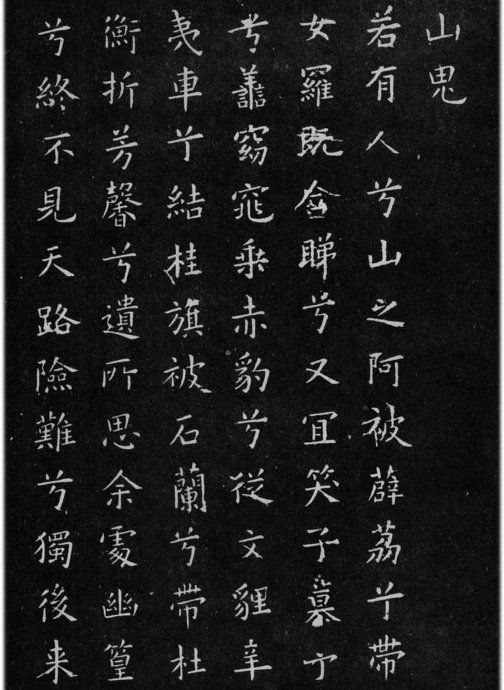 山鬼
若有人兮山之阿被薜荔兮帶
女羅既含睇兮又宜笑子慕予
兮善窈窕乘赤豹兮從文貍辛
夷車兮結桂旗被石蘭兮帶杜
衡折芳馨兮遺所思余處幽篁
兮終不見天路險難兮獨後来